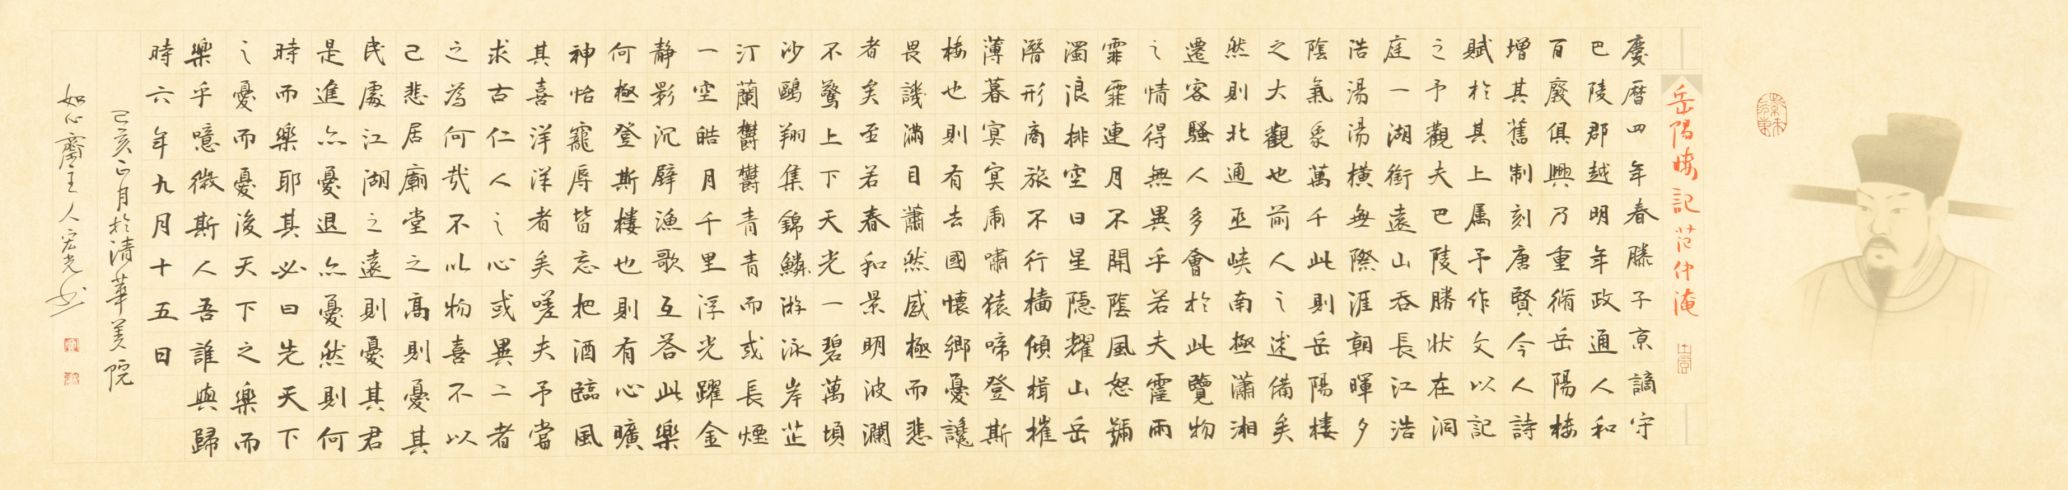 岳陽楼記 范仲淹
慶曆四年春滕子京謫守
巴陵郡越明年政通人和
百廢俱興乃重脩岳陽楼
增其舊制刻唐賢今人詩
賦於其上属予作文以記
之予觀夫巴陵勝狀在洞
庭一湖銜遠山吞長江浩
浩湯湯橫無際涯朝暉夕
陰氣象萬千此則岳陽楼
之大觀也前人之述備矣
然則北通巫峽南極瀟湘
遷客騷人多會於此覽物
之情得無異乎若夫霪雨
霏霏連月不開陰風怒號
濁浪排空日星隱耀山岳
潛形商旅不行檣傾楫摧
薄暮冥冥虎嘯猿啼登斯
楼也則有去國懷鄉憂讒
畏譏滿目蕭然感極而悲
者矣至若春和景明波瀾
不驚上下天光一碧萬頃
沙鷗翔集錦鱗游泳岸芷
汀蘭鬱鬱青青而或長煙
一空皓月千里浮光躍金
靜影沉璧漁歌互答此樂
何極登斯樓也則有心曠
神怡寵辱皆忘把酒臨風
其喜洋洋者矣嗟夫予嘗
求古仁人之心或異二者
之為何哉不以物喜不以
己悲居廟堂之高則憂其
民處江湖之遠則憂其君
是進亦憂退亦憂然則何
時而樂耶其必曰先天下
之憂而憂後天下之樂而
樂乎噫微斯人吾誰與歸
時六年九月十五日
己亥正月於清華美院
如心齋主人宏光書